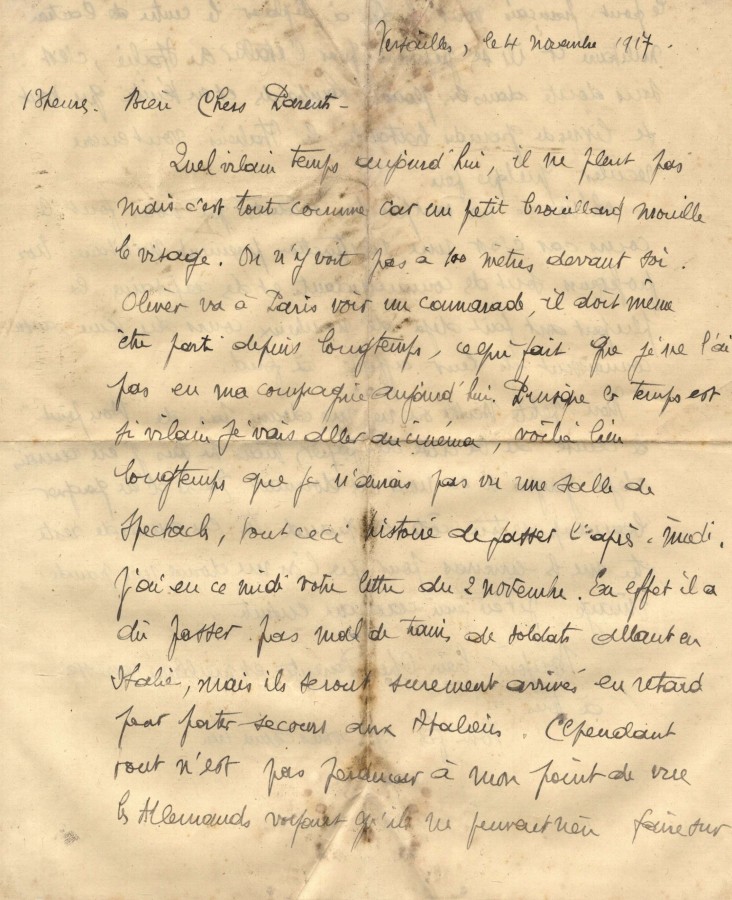 Versailles, le 4 novembre 1917.
13 heures. Bien Chers Parents -
Quel vilain temps aujourd'hui, il ne pleut pas
mais c'est tout comme car un petit brouillard mouille
le visage. On n'y voit pas à 100 mètres devant soi.
Olivier va à Paris voir un camarade, il doit même
être parti depuis longtemps, ce qui fait que je ne l'ai
pas en ma compagnie aujourd'hui. Puisque le temps est
si vilain je vais aller au cinéma, voilà bien
longtemps que je n'avais pas vu une salle de
spectacle, tout ceci histoire de passer l'après-midi.
J'ai eu ce midi votre lettre du 2 novembre. En effet il a
dû passer pas mal de trains de soldats allant en
Italie, mais ils seront surement arrivés en retard
pour porter secours aux Italiens. Cependant
tout n'est pas perdu à mon point de vue
les Allemands voyant qu'ils ne peuvent rien faire sur